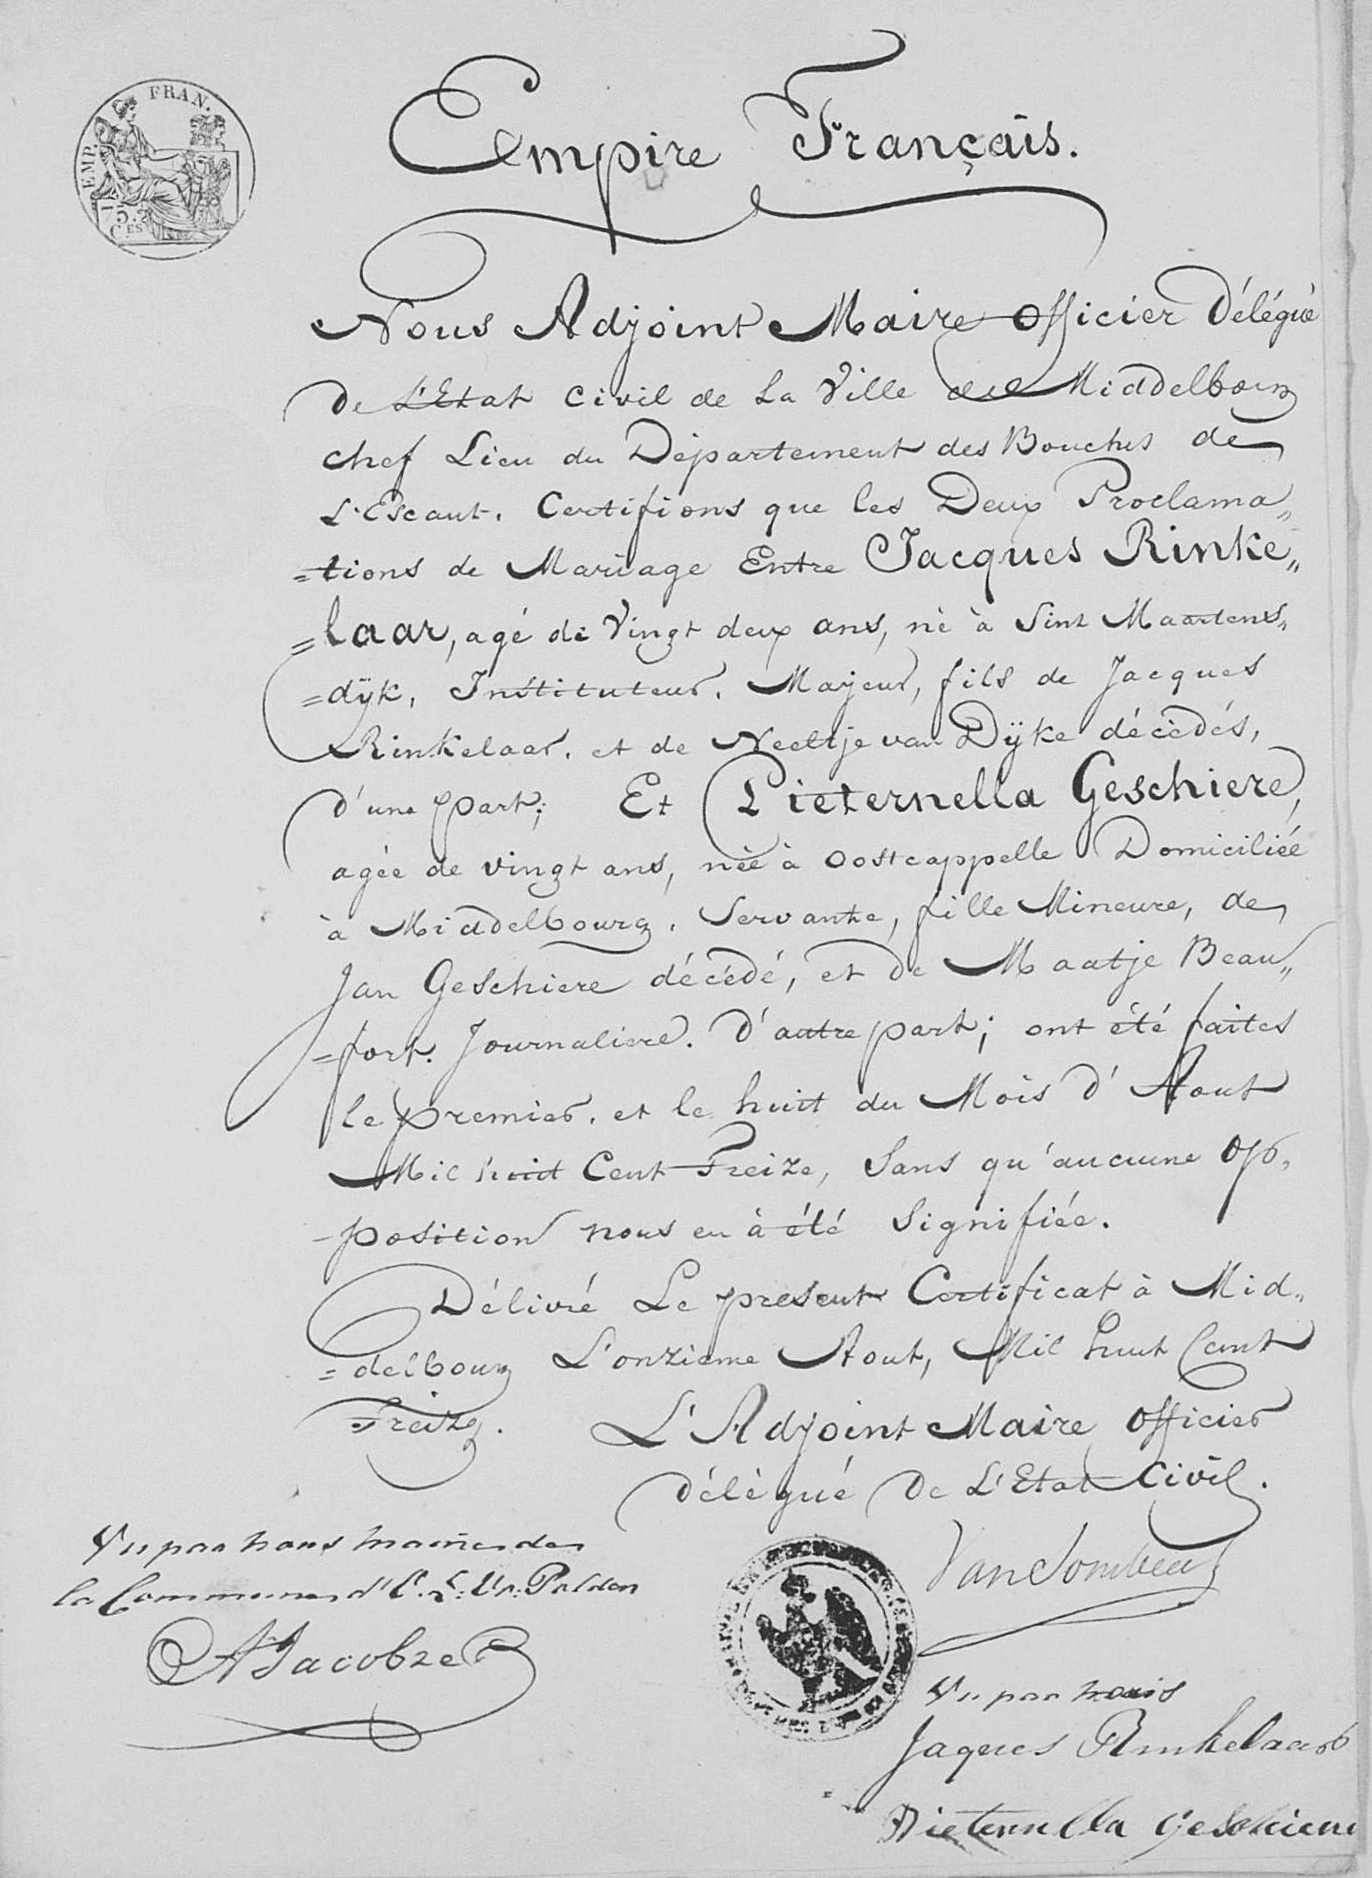 EMP. FRAN.
75.
C.ES
Empire Français.
Nous Adjoint Maire Officier Délégué
De L'Etat Civil de La Ville de Middelbourg
chef Lieu du Département des Bouches de
L'Escaut. Certifions que les Deux Proclama„
=tions de Mariage Entre Jacques Rinke„
=laar, agé de Vingt deux ans, né à Sint Maartens„
=dÿk, Instituteur, Majeur, fils de Jacques
Rinkelaar, et de Neeltje van Dÿke décèdés,
d'une part; Et Pieternella Geschiere,
agée de vingt ans, née à Oostcappelle Domiciliée
à Middelbourg, Servante, fille Mineure, de
Jan Geschiere décédé, et de Maatje Beau„
=fort. Journaliere. d'autre part; ont été faites
le premier, et le huit du Mois d'Aout
Mil huit Cent Treize, Sans qu'aucune Op„
-position nous en à été Signifiée.
Délivré Le present Certificat à Mid„
=delbourg L'onzieme Aout, Mil huit Cent
Treize. L'Adjoint Maire Officier
délégué De L'Etat Civil.
Vu par nous maire de
la Commune d'
AJacobze
Vu par nous
Jaques Rinkelaar
Pieternella Geschiere